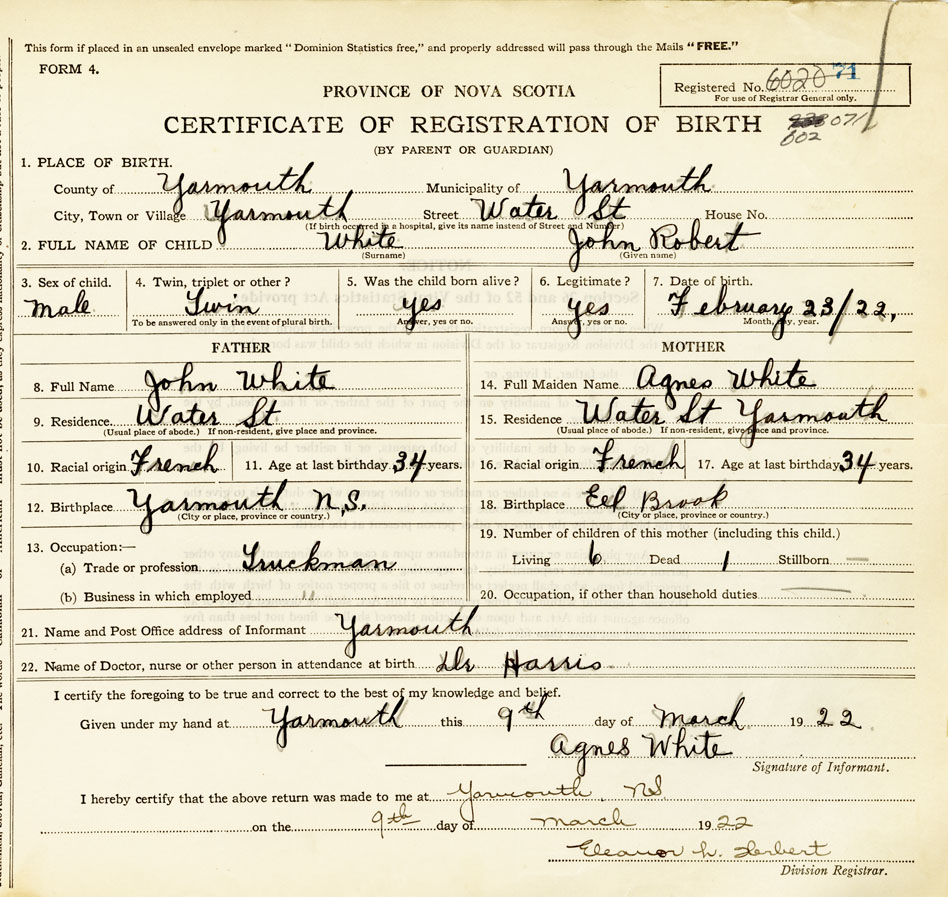 This form if placed in an unsealed envelope marked "Dominion Statistics free," and properly addressed will pass through the Mails "FREE."
FORM 4.
Registered No. 6020 71
For use of Registrar General only.
PROVINCE OF NOVA SCOTIA
CERTIFICATE OF REGISTRATION OF BIRTH
071
602
(BY PARENT OR GUARDIAN)
1. PLACE OF BIRTH.
County of Yarmouth Municipality of Yarmouth
City, Town or Village Yarmouth Street Water St House No.
(If birth occurred in a hospital, give its name instead of Street and Number)
2. FULL NAME OF CHILD White John Robert
(Surname) (Given name)
3. Sex of child. 4. Twin, triplet or other? 5. Was the child born alive? 6. Legitimate? 7. Date of birth.
Male Twin yes yes February 23/22,
To be answered only in the event of plural birth. Answer, yes or no. Answer, yes or no. Month, day, year.
FATHER MOTHER
8. Full Name John White 14. Full Maiden Name Agnes White
9. Residence Water St 15. Residence Water St Yarmouth
(Usual place of abode.) If non-resident, give place and province. (Usual place of abode.) If non-resident, give place and province.
10. Racial origin French 11. Age at last birthday 34 years. 16. Racial origin French 17. Age at last birthday 34 years.
12. Birthplace Yarmouth N,S. 18. Birthplace Eel Brook
(City or place, province or country.) (City or place, province or country.)
13. Occupation:— 19. Number of children of this mother (including this child.)
(a) Trade or profession Truckman Living 6 Dead 1 Stillborn —
(b) Business in which employed " 20. Occupation, if other than household duties —
21. Name and Post Office address of Informant Yarmouth
22. Name of Doctor, nurse or other person in attendance at birth Dr Harris
I certify the foregoing to be true and correct to the best of my knowledge and belief.
Given under my hand at Yarmouth this 9th day of March 1922
Agnes White
Signature of Informant.
I hereby certify that the above return was made to me at Yarmouth, NS
on the 9th day of March 1922
Eleanor L. Herbert
Division Registrar.